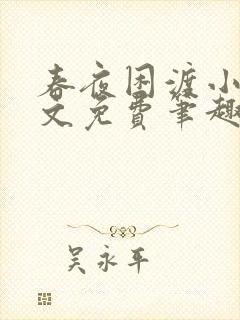 春夜困渡小
文免费笔趣
吴永平